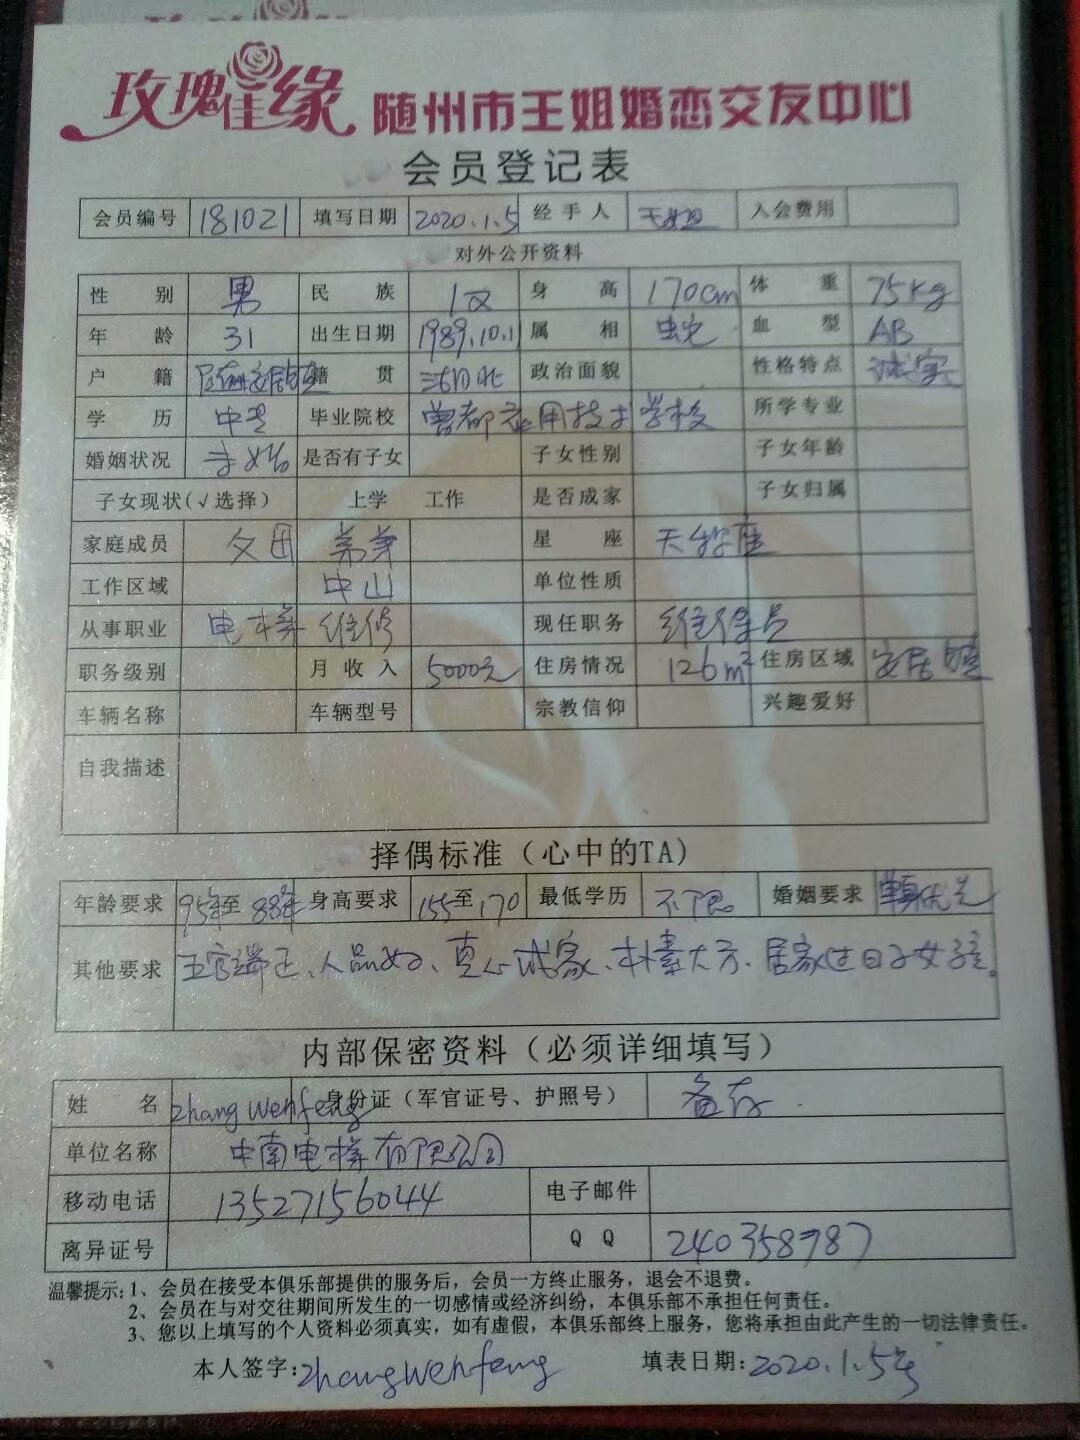 玫瑰佳缘 随州市王姐婚恋交友中心
会员登记表
会员编号 181021 填写日期 2020.1.5 经手人 王姐 入会费用
对外公开资料
性别 男 民族 汉 身高 170cm 体重 75kg
年龄 31 出生日期 1989.10.1 属相 蛇 血型 AB
户籍 籍贯 湖北 政治面貌 性格特点 诚实
学历 中专 毕业院校 曾都应用技术学校 所学专业
婚姻状况 未婚 是否有子女 子女性别 子女年龄
子女现状(√选择) 上学 工作 是否成家 子女归属
家庭成员 父母 弟弟 星座 天秤座
工作区域 中山 单位性质
从事职业 电梯维修 现任职务 维保员
职务级别 月收入 5000元 住房情况 126m² 住房区域 安居镇
车辆名称 车辆型号 宗教信仰 兴趣爱好
自我描述
择偶标准（心中的TA)
年龄要求 95年至88年 身高要求 155至170 最低学历 不限 婚姻要求
其他要求 五官端正、人品好、真心成家、朴素大方、居家过日子女孩。
内部保密资料（必须详细填写）
姓名 zhangwenfeng 身份证（军官证号、护照号） 备存.
单位名称 中南电梯有限公司
移动电话 13527156044 电子邮件
离异证号 QQ 240358787
温馨提示:1、会员在接受本俱乐部提供的服务后，会员一方终止服务，退会不退费。
2、会员在与对交往期间所发生的一切感情或经济纠纷，本俱乐部不承担任何责任。
3、您以上填写的个人资料必须真实，如有虚假，本俱乐部终上服务，您将承担由此产生的一切法律责任。
本人签字:zhangwenfeng 填表日期:2020.1.5号